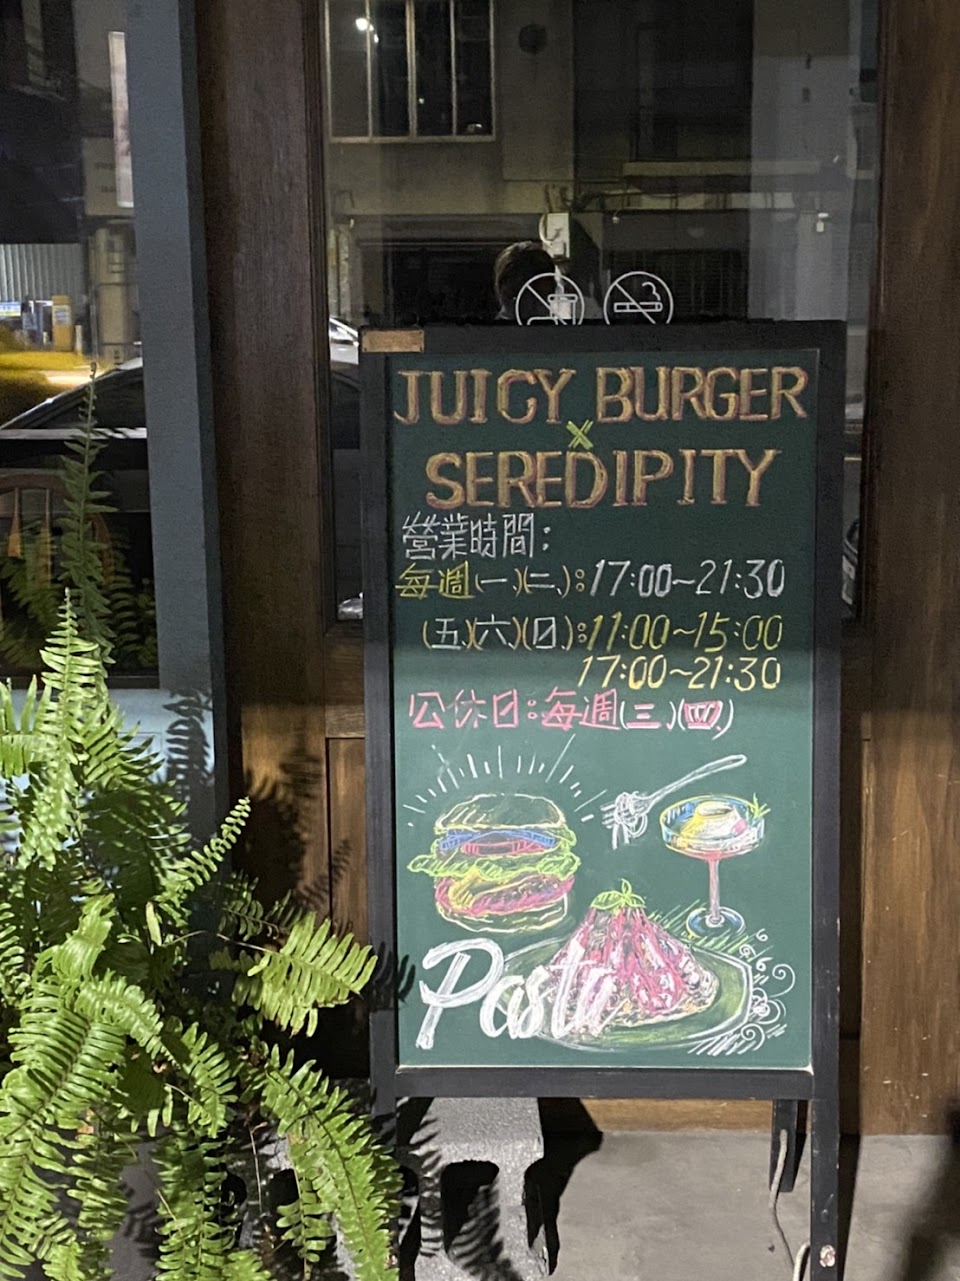 JUICY BURGER
x
SEREDIPITY
營業時間:
每週(一、)(二、):17:00~21:30
(五、)(六、)(日、):11:00~15:00
17:00~21:30
公休日:每週(三、)(四)
Pasta